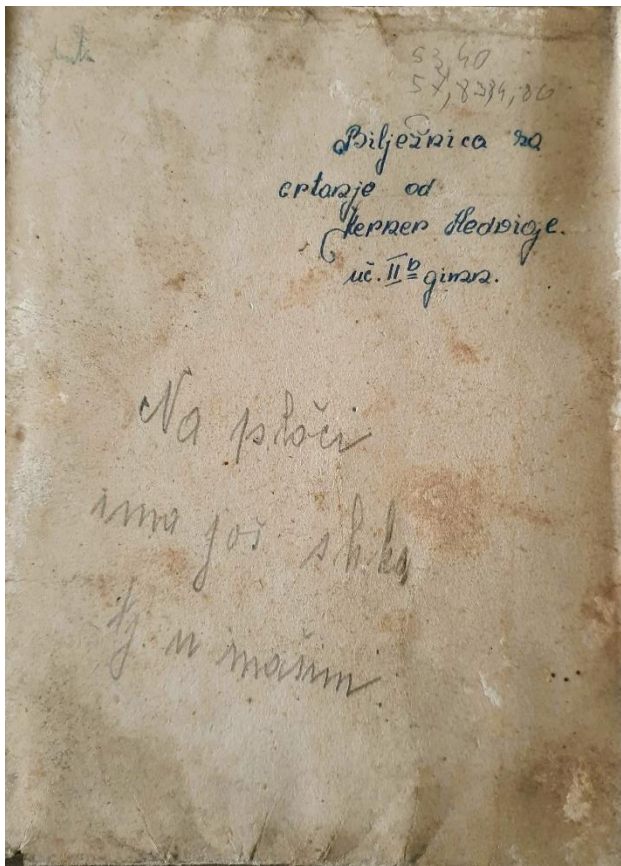 53,40
Bilježnica za
crtanje od
Herner Hedvige.
uč. II b gimn.
Na ploči
ima još slika
tj u mašini